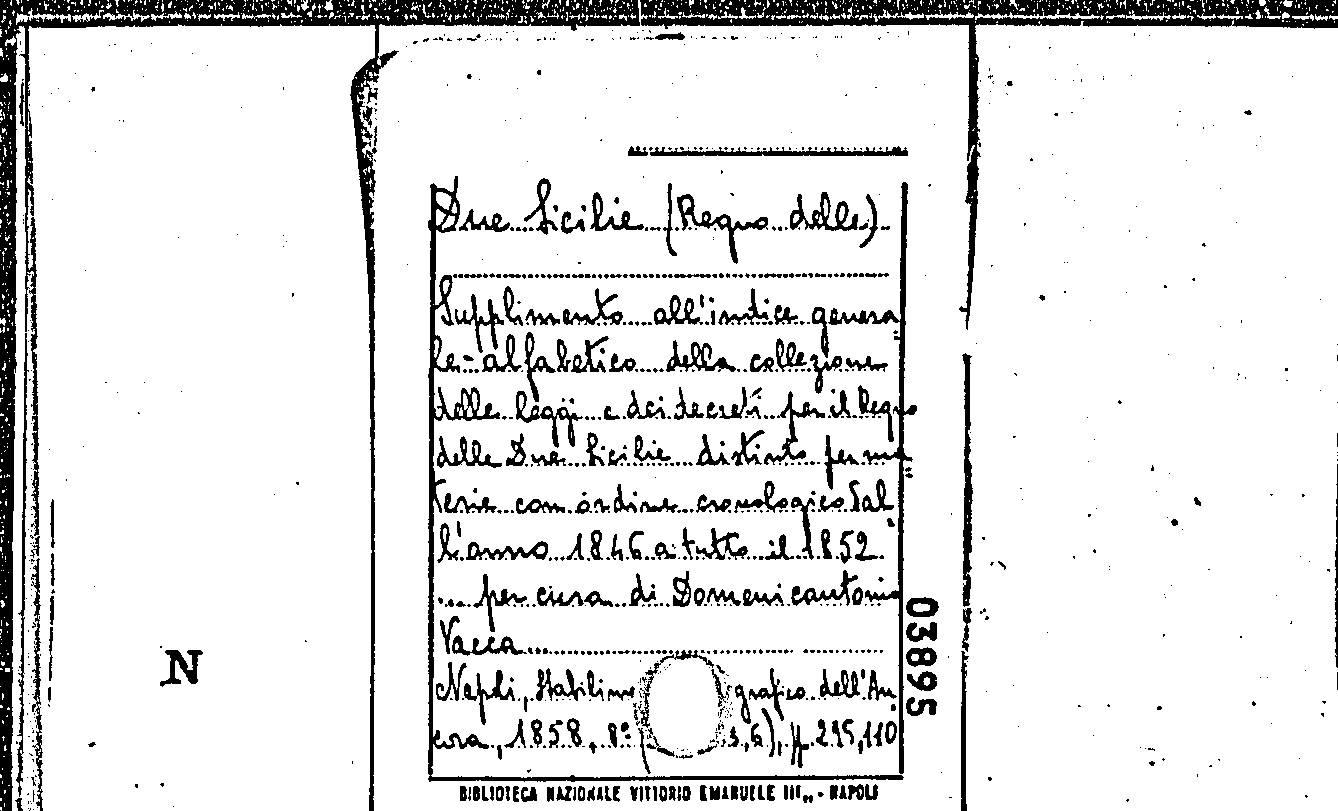 Due Sicilie (Regno delle)
Supplimento all'indice genera
le-alfabetico della collezione
delle leggi e dei decreti per il Regno
delle Due Sicilie distinto per ma=
terie con ordine cronologico dal
l'anno 1846 a tutto il 1852
... per cura di Domenicantonio
Vacca...
Napoli, Stabilime grafico dell'An
cora, 1858, 8º 3,6), p. 295,110
BIBLIOTECA NAZIONALE VITTORIO EMANUELE III,, - NAPOLI
03895
N